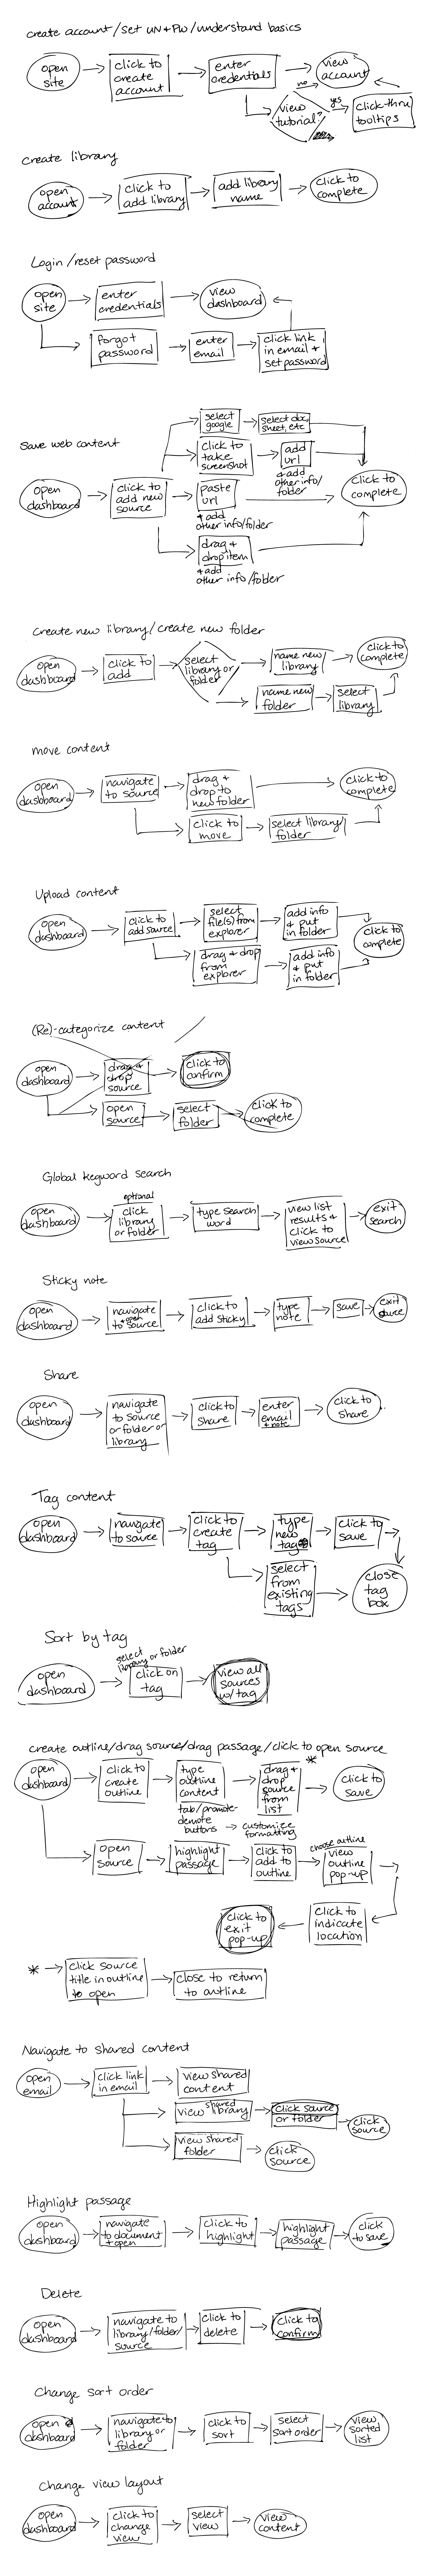 create account/set UN+PW/understand basics
open
site
click to
create
account
enter
credentials
view
account
no
view
tutorial?
yes
click-thru
tooltips
create library
open
account
click to
add library
add library
name
click to
complete
Login/reset password
open
site
enter
credentials
view
dashboard
forgot
password
enter
email
click link
in email +
set password
Save web content
select
google
select doc,
sheet, etc
click to
take
screenshot
add
url
+ add
other info/
folder
open
dashboard
click to
add new
source
paste
url
+ add
other info/folder
click to
complete
drag +
drop item
+ add
other info/folder
create new library/create new folder
open
dashboard
click to
add
select
library or
folder
name new
library
click to
complete
name new
folder
select
library
move content
open
dashboard
navigate
to source
drag +
drop to
new folder
click to
complete
click to
move
select library/
folder
Upload content
open
dashboard
click to
add source
select
file(s) from
explorer
add info
+ put
in folder
click to
complete
drag + drop
from
explorer
add info
+ put
in folder
(Re)-categorize content
open
dashboard
drag +
drop
source
click to
confirm
open
source
select
folder
click to
complete
Global keyword search
open
dashboard
optional
click
library
or folder
type search
word
view list
results +
click to
view source
exit
search
Sticky note
open
dashboard
navigate
+ open
to source
click to
add sticky
type
note
save
exit
source
Share
open
dashboard
navigate
to source
or folder or
library
click to
share
enter
email
+ note
click to
share
Tag content
open
dashboard
navigate
to source
click to
create
tag
type
new
tag
click to
save
select
from
existing
tags
close
tag
box
Sort by tag
open
dashboard
select
library or folder
click on
tag
view all
sources
w/tag
create outline/drag source/drag passage/click to open source
open
dashboard
click to
create
outline
type
outline
content
drag +
drop
source
from
list
*
click to
save
tab/promote-
demote
buttons → customize
formatting
open
source
highlight
passage
click to
add to
outline
choose outline
view
outline
pop-up
click to
exit
pop-up
click to
indicate
location
*
click source
title in outline
to open
close to return
to outline
Navigate to shared content
open
email
click link
in email
view shared
content
shared
view library
click source
or folder
click
source
view shared
folder
click
source
Highlight passage
open
dashboard
navigate
to document
+ open
click to
highlight
highlight
passage
click
to save
Delete
open
dashboard
navigate to
library/folder/
source
click to
delete
click to
confirm
Change sort order
open
dashboard
navigate to
library or
folder
click to
sort
select
sort order
view
sorted
list
Change view layout
open
dashboard
click to
change
view
select
view
view
content